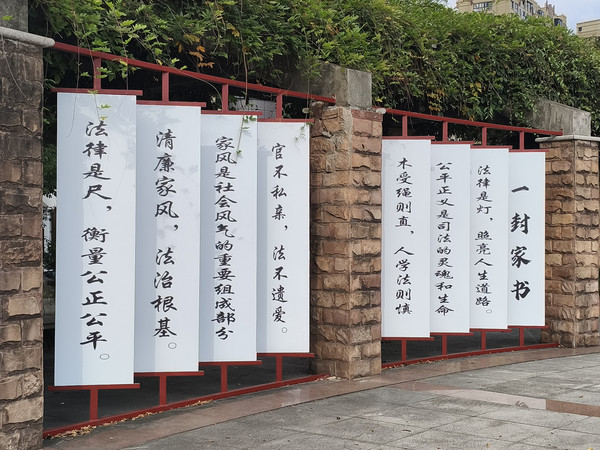 一封家书
法律是灯，照亮人生道路。
公平正义是司法的灵魂和生命
木受绳则直，人学法则慎
官不私亲，法不遗爱。
家风是社会风气的重要组成部分
清廉家风，法治根基。
法律是尺，衡量公正公平。